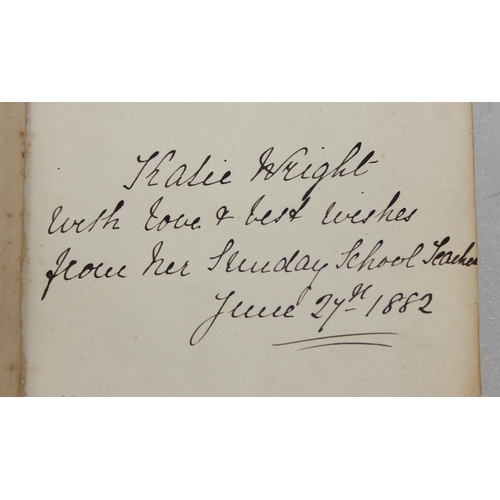 Katie Wright
with love & best wishes
from her Sunday School Teacher
June 27th 1882